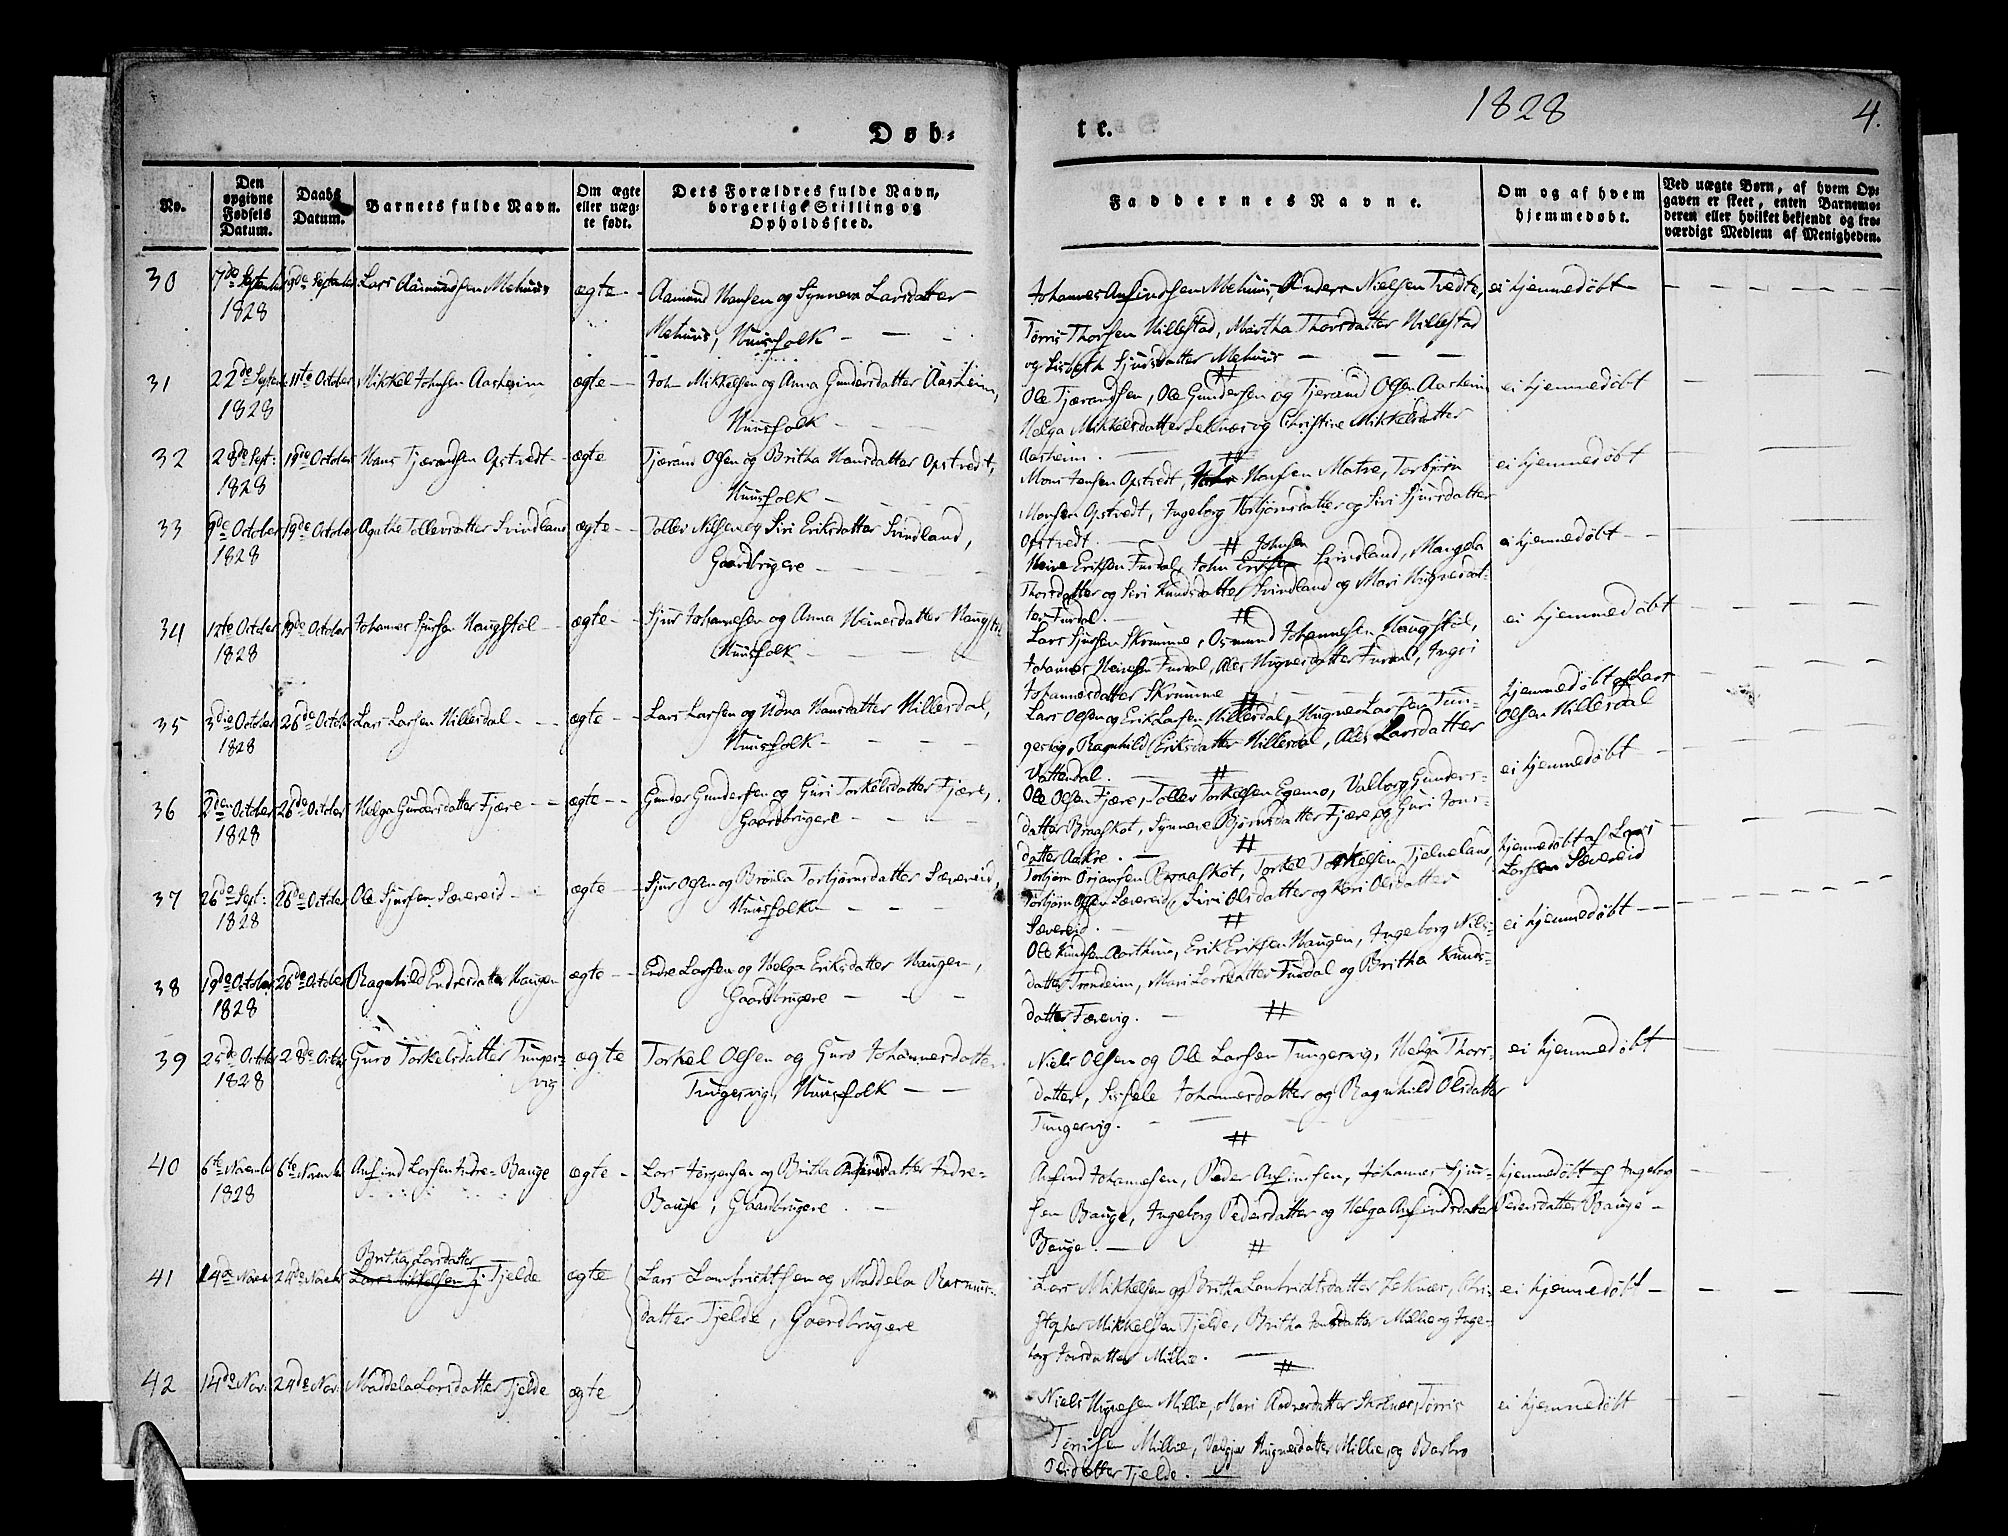 1828
4.
Døb-
te.
No.
Den opgivne Fødsels Datum.
Daabs Datum.
Barnets fulde Navn.
Om ægte eller uægte født.
Dets Forældres fulde Navn, borgerlige Stilling og Opholdssted.
Faddernes Navne.
Om og af hvem hjemmedøbt.
Ved uægte Børn, af hvem Opgaven er skeet, enten Barnemoderen eller hvilket bekjendt og troværdigt Medlem af Menigheden.
30
Septemb
1828
Septemb
Lars Aamundsen Mehuus
ægte
Aamund Hansen og Synneva Larsdatter
Mehuus, Huusfolk
Johannes Anfindsen Mehuus, Anders Nielsen Tvedte,
Tørris Thorsen Hillestad, Martha Thorsdatter Hillestad
og Lisbeth Sjursdatter Mehuus
ei hjemmedøbt
31
22de Septem
1828
11te October
Mikkel Johnsen Aasheim
ægte
John Mikkelsen og Anna Gundersdatter Aasheim,
Huusfolk
Ole Tjærandsen, Ole Gundersen og Tjerand Olsen Aasheim
Helga Mikkelsdatter Leknæs og Christine Mikkelsdatter
Aasheim.
ei hjemmedøbt
32
28de Sept:
1828
October
Hans Tjærandsen Opstvedt
ægte
Tjærand Olsen og Britha Hansdatter Opstvedt,
Huusfolk
Mons Jensen Opstvedt, Hansen Matre, Torbjørn
Monsen Opstvedt, Ingeborg Torbjørnsdatter og Siri Sjursdatter
Opstvedt.
ei hjemmedøbt
33
9de October
1828
19de October
Agathe Tollevsdatter Svindland
ægte
Tollev Nilsen og Siri Eriksdatter Svindland,
Gaardbrugere
Heine Eriksen Furdal, John Eriksen Johnsen Svindland, Mangela
Thorsdatter og Siri Knudsdatter Svindland og Mari Hugnesdat-
ter Furdal.
ei hjemmedøbt
34
12te October
1828
19de October
Johannes Sjursen Haugstøl
ægte
Sjur Johannesen og Anna Heinesdatter Haugstøl
Huusfolk
Lars Sjursen Skrumme, Osmund Johannesen Haugstøl,
Johannes Heinesen Furdal, Ales Hugnesdatter Furdal, Ingri
Johannesdatter Skrumme
ei hjemmedøbt
35
3die October
1828
26de October
Lars Larsen Hillesdal
ægte
Lars Larsen og Udna Hansdatter Hillesdal,
Huusfolk
Lars Olsen og Erik Larsen Hillesdal, Hugne Larsen Tun-
gesvig, Ragnhild Eriksdatter Hillesdal, Ales Larsdatter
Vattendal.
hjemmedøbt af Lars
Olsen Hillesdal
36
2den October
1828
26de October
Helga Gundersdatter Fjære
ægte
Gunder Gundersen og Guri Torkelsdatter Fjære,
Gaardbrugere
Ole Olsen Fjære, Tollev Torkelsen Egemo, Valborg Gunders-
datter Braaskot, Synneve Bjørnsdatter Fjære og Guri Jons-
datter Aakre.
ei hjemmedøbt
37
26de Sept:
1828
26de October
Ole Sjursen Sævereid
ægte
Sjur Olsen og Brønla Torbjørnsdatter Sævereid,
Huusfolk
Torbjørn Ørjansen Braaskot, Torkel Torkelsen Tjelmeland,
Torbjørn Olsen Sævereid, Siri Olsdatter og Kari Olsdatter
Sævereid.
hjemmedøbt af Lars
Larsen Sævereid
38
19de October
1828
26de October
Ragnhild Endresdatter Haugen
ægte
Endre Larsen og Helga Eriksdatter Haugen,
Gaardbrugere
Ole Knudsen Aarthun, Erik Eriksen Haugen, Ingeborg Niels-
datter Trondeim, Mari Larsdatter Furdal og Britha Knuds-
datter Færevig.
ei hjemmedøbt
39
25de October
1828
28de Octob
Guro Torkelsdatter Tunges-
vig
ægte
Torkel Olsen og Guro Johannesdatter
Tungesvig, Huusfolk
Niels Olsen og Ole Larsen Tungesvig, Helga Thors-
datter, Sissele Johannesdatter og Ragnhild Olsdatter
Tungesvig.
ei hjemmedøbt
40
6te Novemb
1828
6te Novemb
Anfind Larsen Indre-Bauge
ægte
Lars Jørgensen og Britha Anfindsdatter Indre-
Bauge, Gaardbrugere
Anfind Johannesen, Peder Anfinsen, Johannes Sjur-
sen Bauge, Ingeborg Pedersdatter og Helga Anfindsdatter
Bauge.
hjemmedøbt af Ingeborg
Pedersdatter Bauge
41
14de Novb
24de Novb
Britha Larsdatter
Lars Mikkelsen Tj. Tjelde
ægte
Lars Lambrichtsen og Maddela Rasmus-
datter Tjelde, Gaardbrugere
Lars Mikkelsen og Britha Lambrichtsdatter Leknæs, Chri-
stopher Mikkelsen Tjelde, Britha datter Millie og Inge-
borg Jarsdatter Millie.
ei hjemmedøbt
42
14de Nov:
24de Nov:
Maddela Larsdatter Tjelde
ægte
Niels Hugnesen Millie, Mari Andersdatter Skolnæs, Tørris
Tørrisen Millie, Hugnesdatter Millie og Barbro
Olsdatter Tjelde.
ei hjemmedøbt